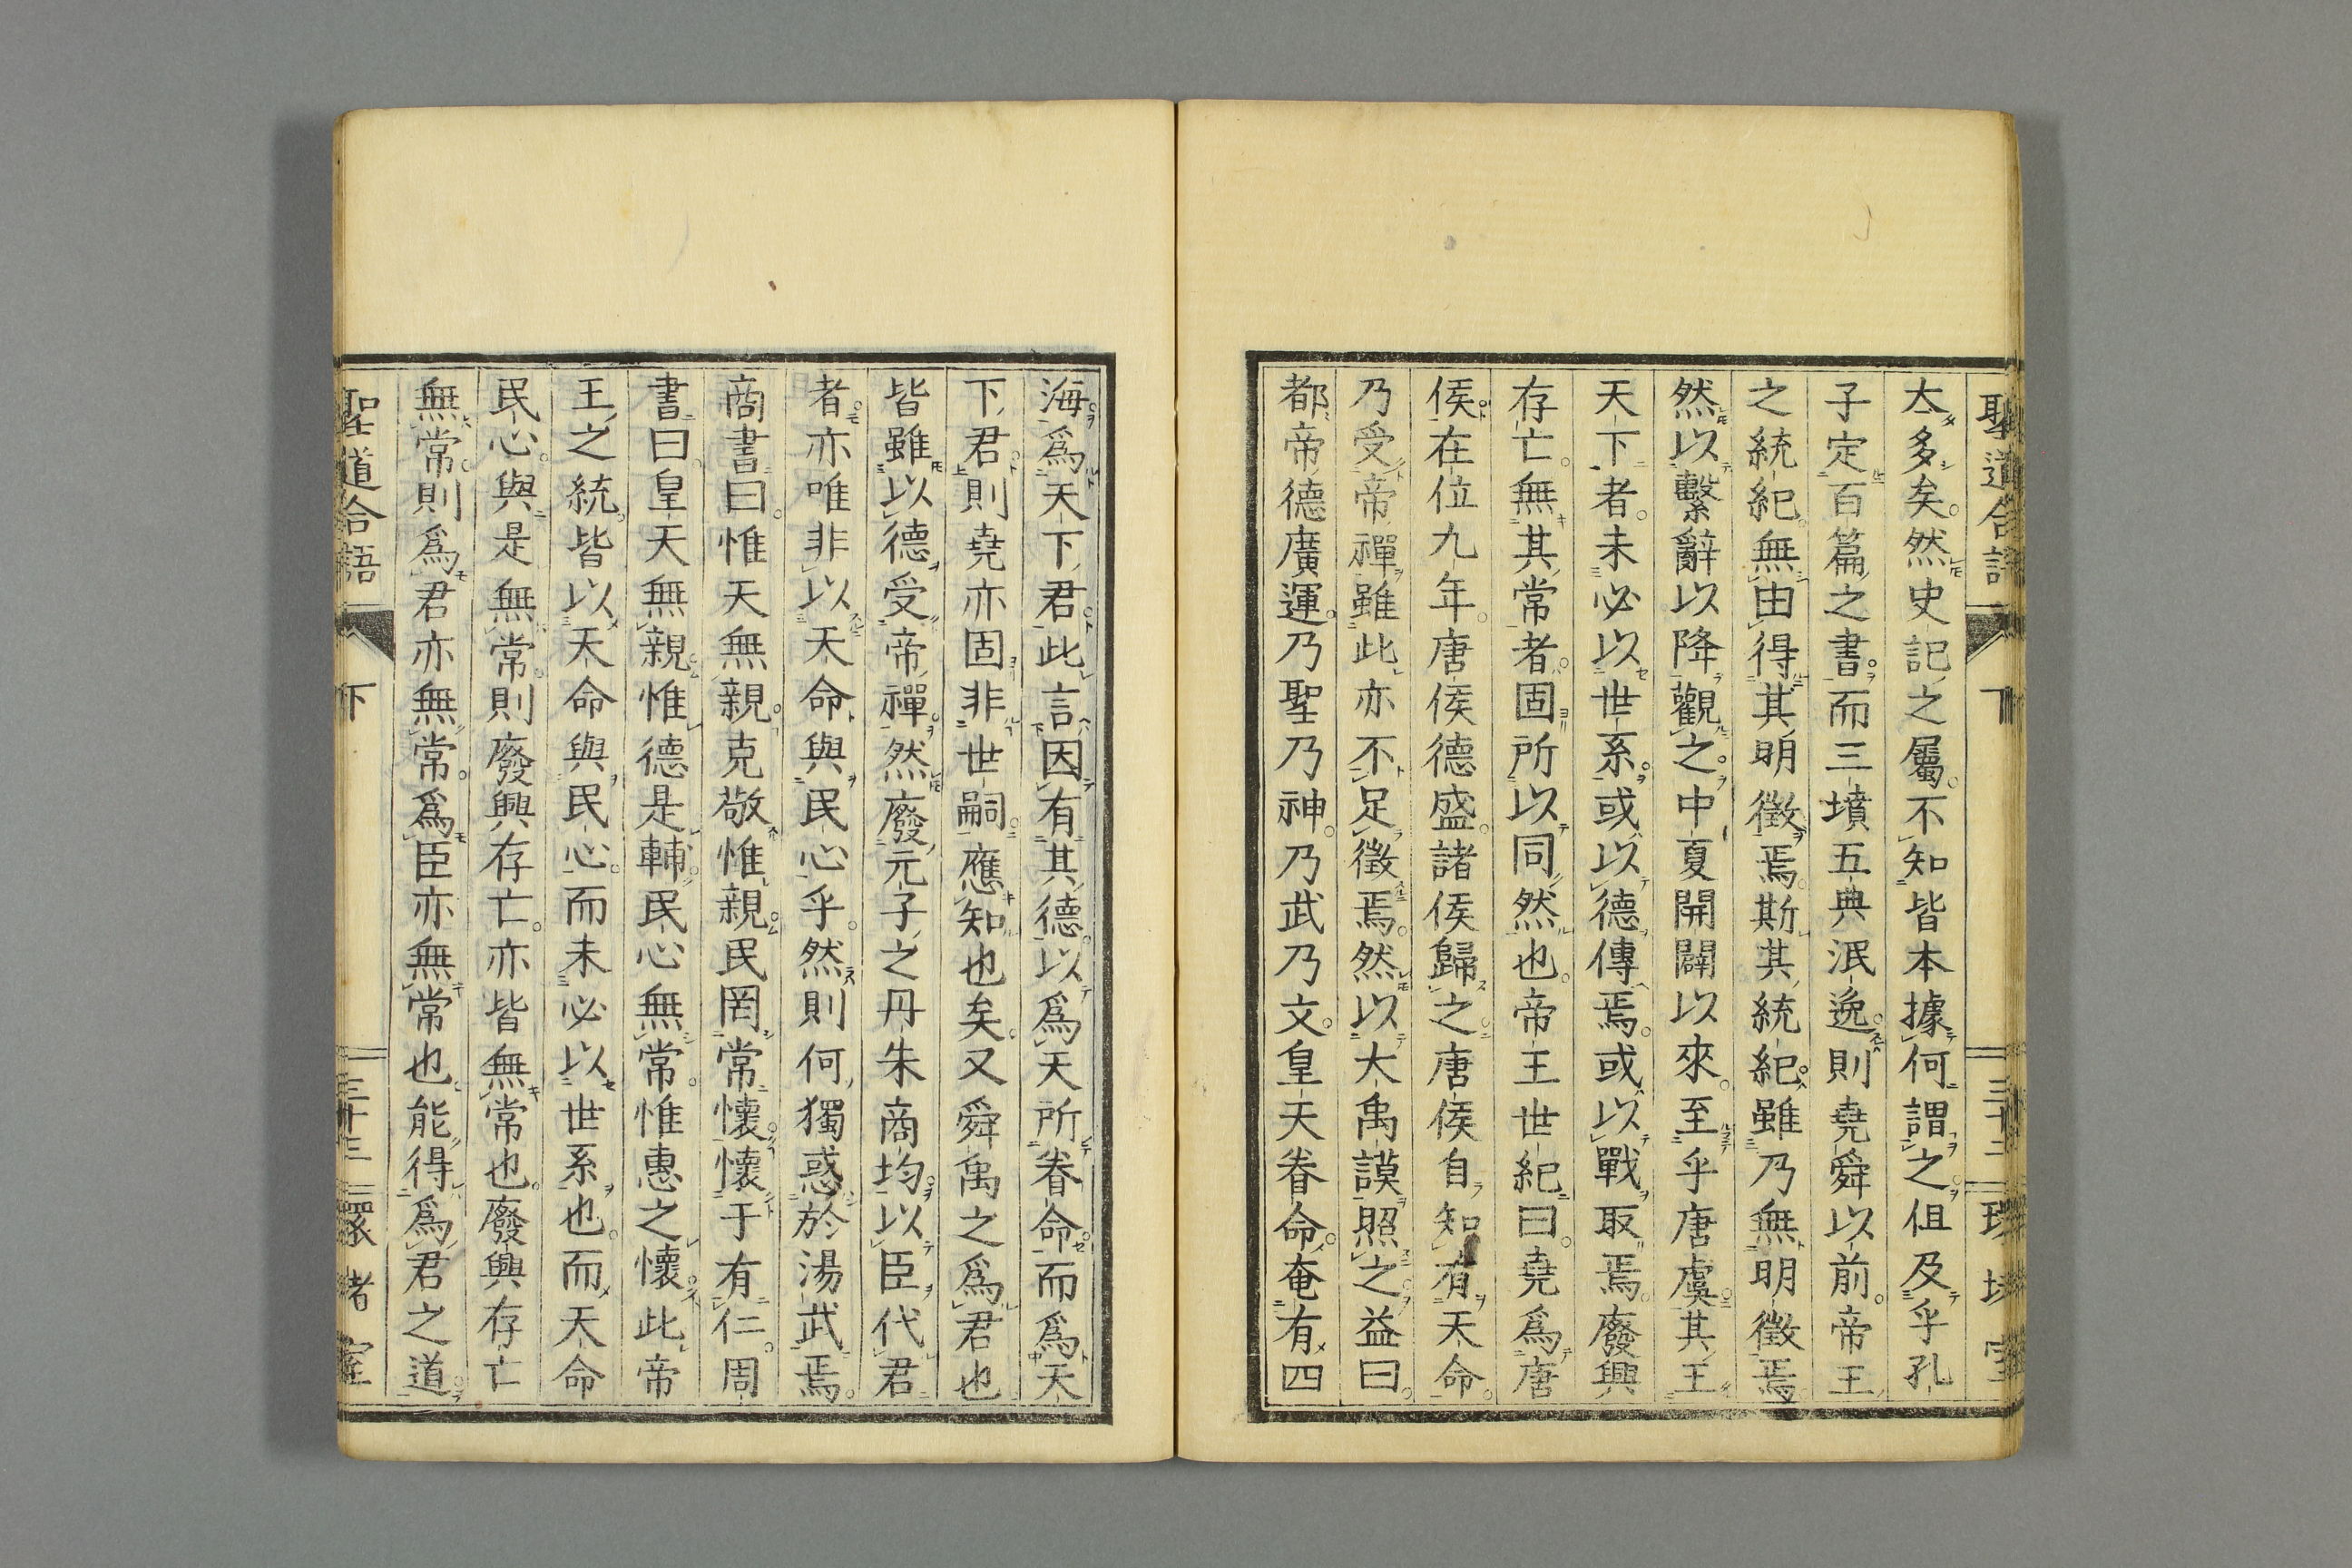 聖道合語 下 三十二
太多矣然史記之屬不知皆本據何謂之伹及乎孔
子定百篇之書而三墳五典泯逸則堯舜以前帝王
之統紀無由得其明徵焉斯其統紀雖乃無明徵焉
然以繫辭以降觀之中夏開闢以來至乎唐虞其王
天下者未必以世系或以德傳焉或以戰取焉廢興
存亡無其常者固所以同然也帝王世紀曰堯爲唐
侯在位九年唐侯德盛諸侯歸之唐侯自知有天命
乃受帝禪雖此亦不足徵焉然以大禹謨照之益曰
都帝德廣運乃聖乃神乃武乃文皇天眷命奄有四
海爲天下君此言因有其德以爲天所眷命而爲天
下君則堯亦固非世嗣應知也矣又舜禹之爲君也
皆雖以德受帝禪然廢元子之丹朱商均以臣代君
者亦唯非以天命與民心乎然則何獨惑於湯武焉
商書曰惟天無親克敬惟親民罔常懷懷于有仁周
書曰皇天無親惟德是輔民心無常惟惠之懷此帝
王之統皆以天命與民心而未必以世系也而天命
民心與是無常則廢興存亡亦皆無常也廢興存亡
無常則爲君亦無常爲臣亦無常也能得爲君之道
聖道合語 下 三十三